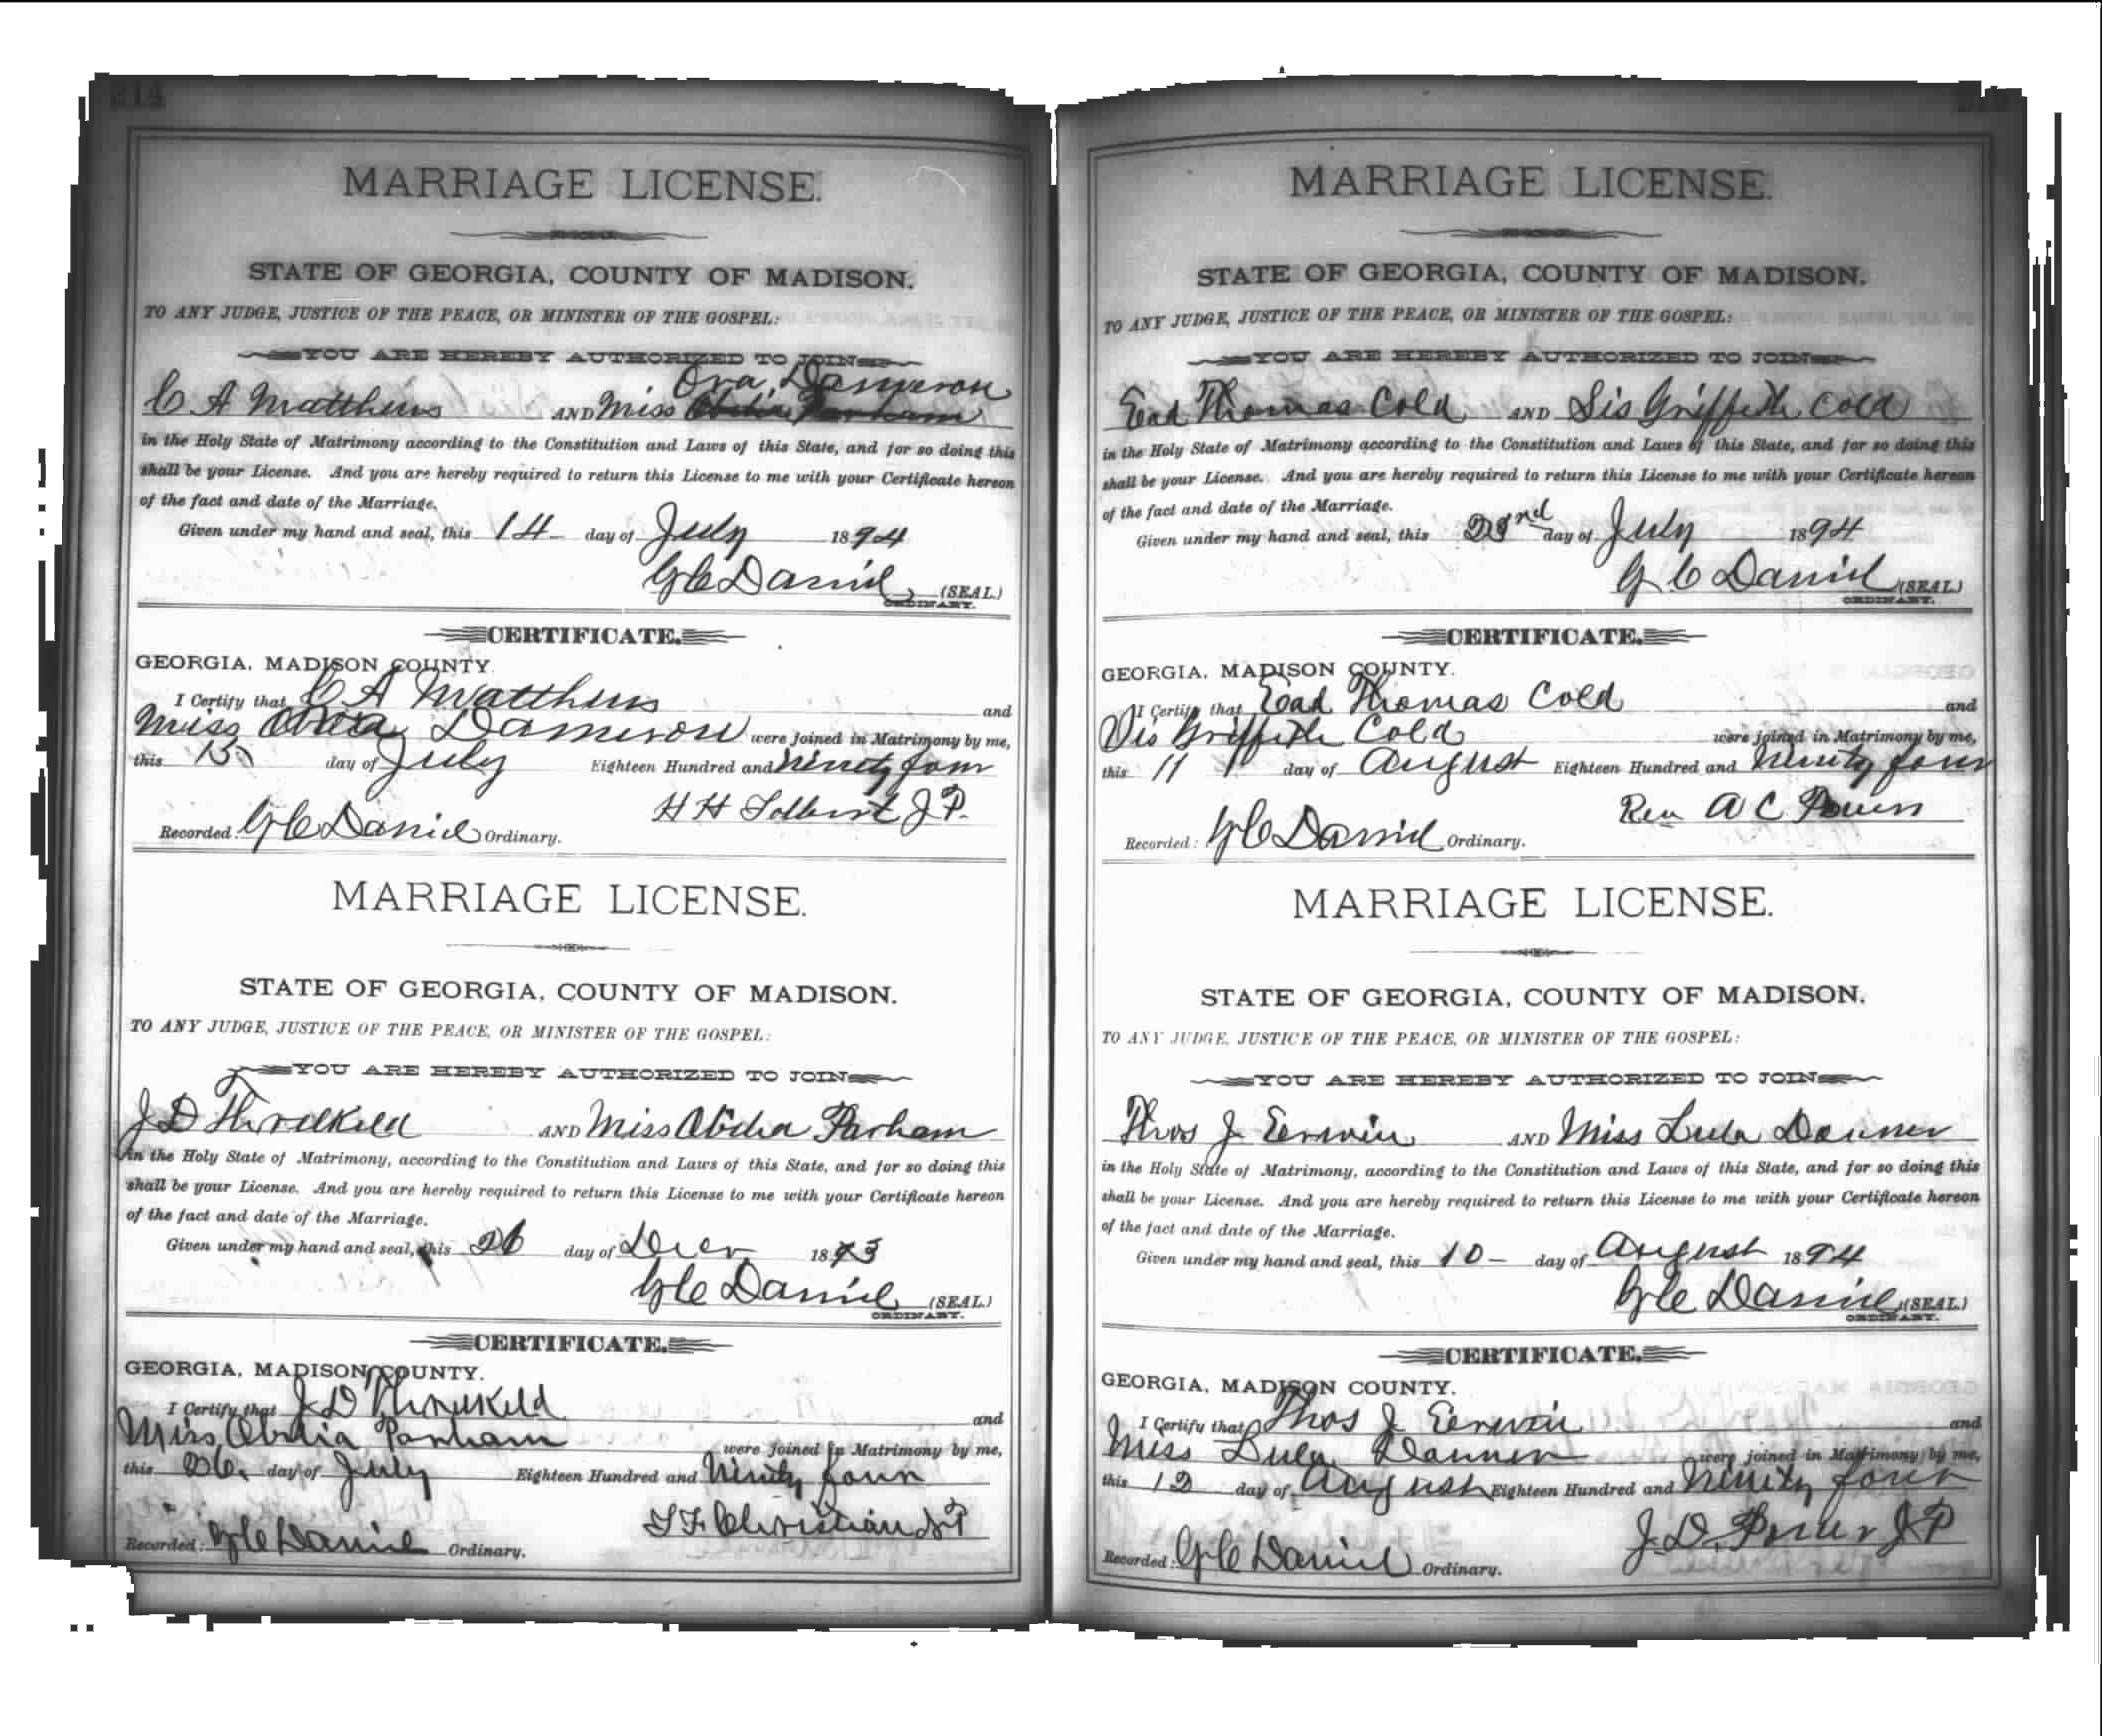 214
MARRIAGE LICENSE.
STATE OF GEORGIA, COUNTY OF MADISON.
TO ANY JUDGE, JUSTICE OF THE PEACE, OR MINISTER OF THE GOSPEL:
YOU ARE HEREBY AUTHORIZED TO JOIN
Ora Dameron
C A Matthews AND Miss Obedia Parham
in the Holy State of Matrimony according to the Constitution and Laws of this State, and for so doing this
shall be your License. And you are hereby required to return this License to me with your Certificate hereon
of the fact and date of the Marriage.
Given under my hand and seal, this 14 day of July 1894
G C Daniel (SEAL.)
ORDINARY.
CERTIFICATE.
GEORGIA, MADISON COUNTY.
I Certify that C A Matthews and
Miss Ora Dameron were joined in Matrimony by me,
this 15 day of July Eighteen Hundred and ninety four
H H Tolbert J P.
Recorded: G C Daniel Ordinary.
MARRIAGE LICENSE.
STATE OF GEORGIA, COUNTY OF MADISON.
TO ANY JUDGE, JUSTICE OF THE PEACE, OR MINISTER OF THE GOSPEL:
YOU ARE HEREBY AUTHORIZED TO JOIN
J D Threlkeld AND Miss Obedia Parham
in the Holy State of Matrimony, according to the Constitution and Laws of this State, and for so doing this
shall be your License. And you are hereby required to return this License to me with your Certificate hereon
of the fact and date of the Marriage.
Given under my hand and seal, this 26 day of Decr 1893
G C Daniel (SEAL.)
ORDINARY.
CERTIFICATE.
GEORGIA, MADISON COUNTY.
I Certify that J D Threlkeld and
Miss Obedia Parham were joined in Matrimony by me,
this 26. day of July Eighteen Hundred and Ninety four
T F Christian J P
Recorded: G C Daniel Ordinary.
MARRIAGE LICENSE.
STATE OF GEORGIA, COUNTY OF MADISON.
TO ANY JUDGE, JUSTICE OF THE PEACE, OR MINISTER OF THE GOSPEL:
YOU ARE HEREBY AUTHORIZED TO JOIN
Ead Thomas Cold AND Sis Griffeth Cold
in the Holy State of Matrimony according to the Constitution and Laws of this State, and for so doing this
shall be your License. And you are hereby required to return this License to me with your Certificate hereon
of the fact and date of the Marriage.
Given under my hand and seal, this day of July 1894
G C Daniel (SEAL.)
ORDINARY.
CERTIFICATE.
GEORGIA, MADISON COUNTY.
I Certify that Ead Thomas Cold and
Sis Griffeth Cold were joined in Matrimony by me,
this 11 day of August Eighteen Hundred and Ninety four
Rev A C
Recorded: G C Daniel Ordinary.
MARRIAGE LICENSE.
STATE OF GEORGIA, COUNTY OF MADISON.
TO ANY JUDGE, JUSTICE OF THE PEACE, OR MINISTER OF THE GOSPEL:
YOU ARE HEREBY AUTHORIZED TO JOIN
Thos J Eerwin AND Miss Lula Danner
in the Holy State of Matrimony, according to the Constitution and Laws of this State, and for so doing this
shall be your License. And you are hereby required to return this License to me with your Certificate hereon
of the fact and date of the Marriage.
Given under my hand and seal, this 10 – day of August 1894
G C Daniel (SEAL.)
ORDINARY.
CERTIFICATE.
GEORGIA, MADISON COUNTY.
I Certify that Thos J Eerwin and
Miss Lula Danner were joined in Matrimony by me,
this 12 day of August Eighteen Hundred and Ninety four
J. D. J P
Recorded: G C Daniel Ordinary.